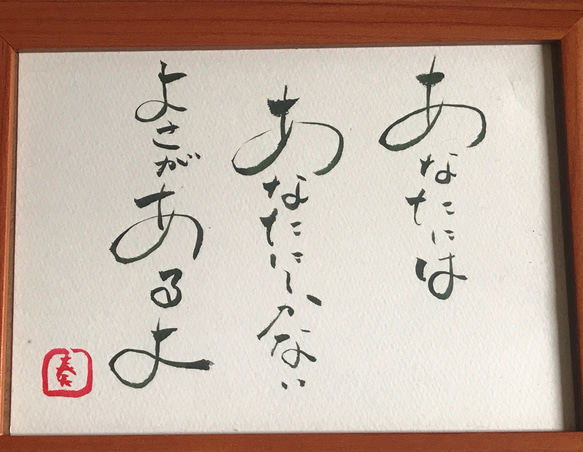 あなたには
あなたにしかない
よさがあるよ